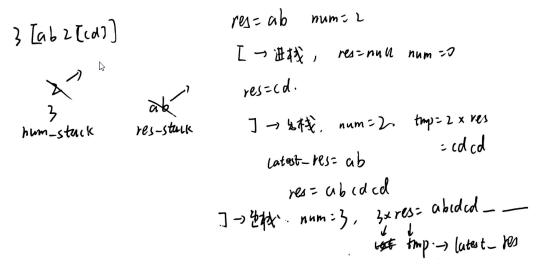 3 [ab 2 [cd]]
2
3
num_stack
ab
res_stack
res = ab num = 2
[ → 进栈, res = null num = 0
res = cd.
] → 出栈, num = 2 tmp = 2 × res
= cd cd
latest_res = ab
res = ab cd cd
] → 出栈. num = 3, 3 × res = abcdcd _ __
tmp → latest_res